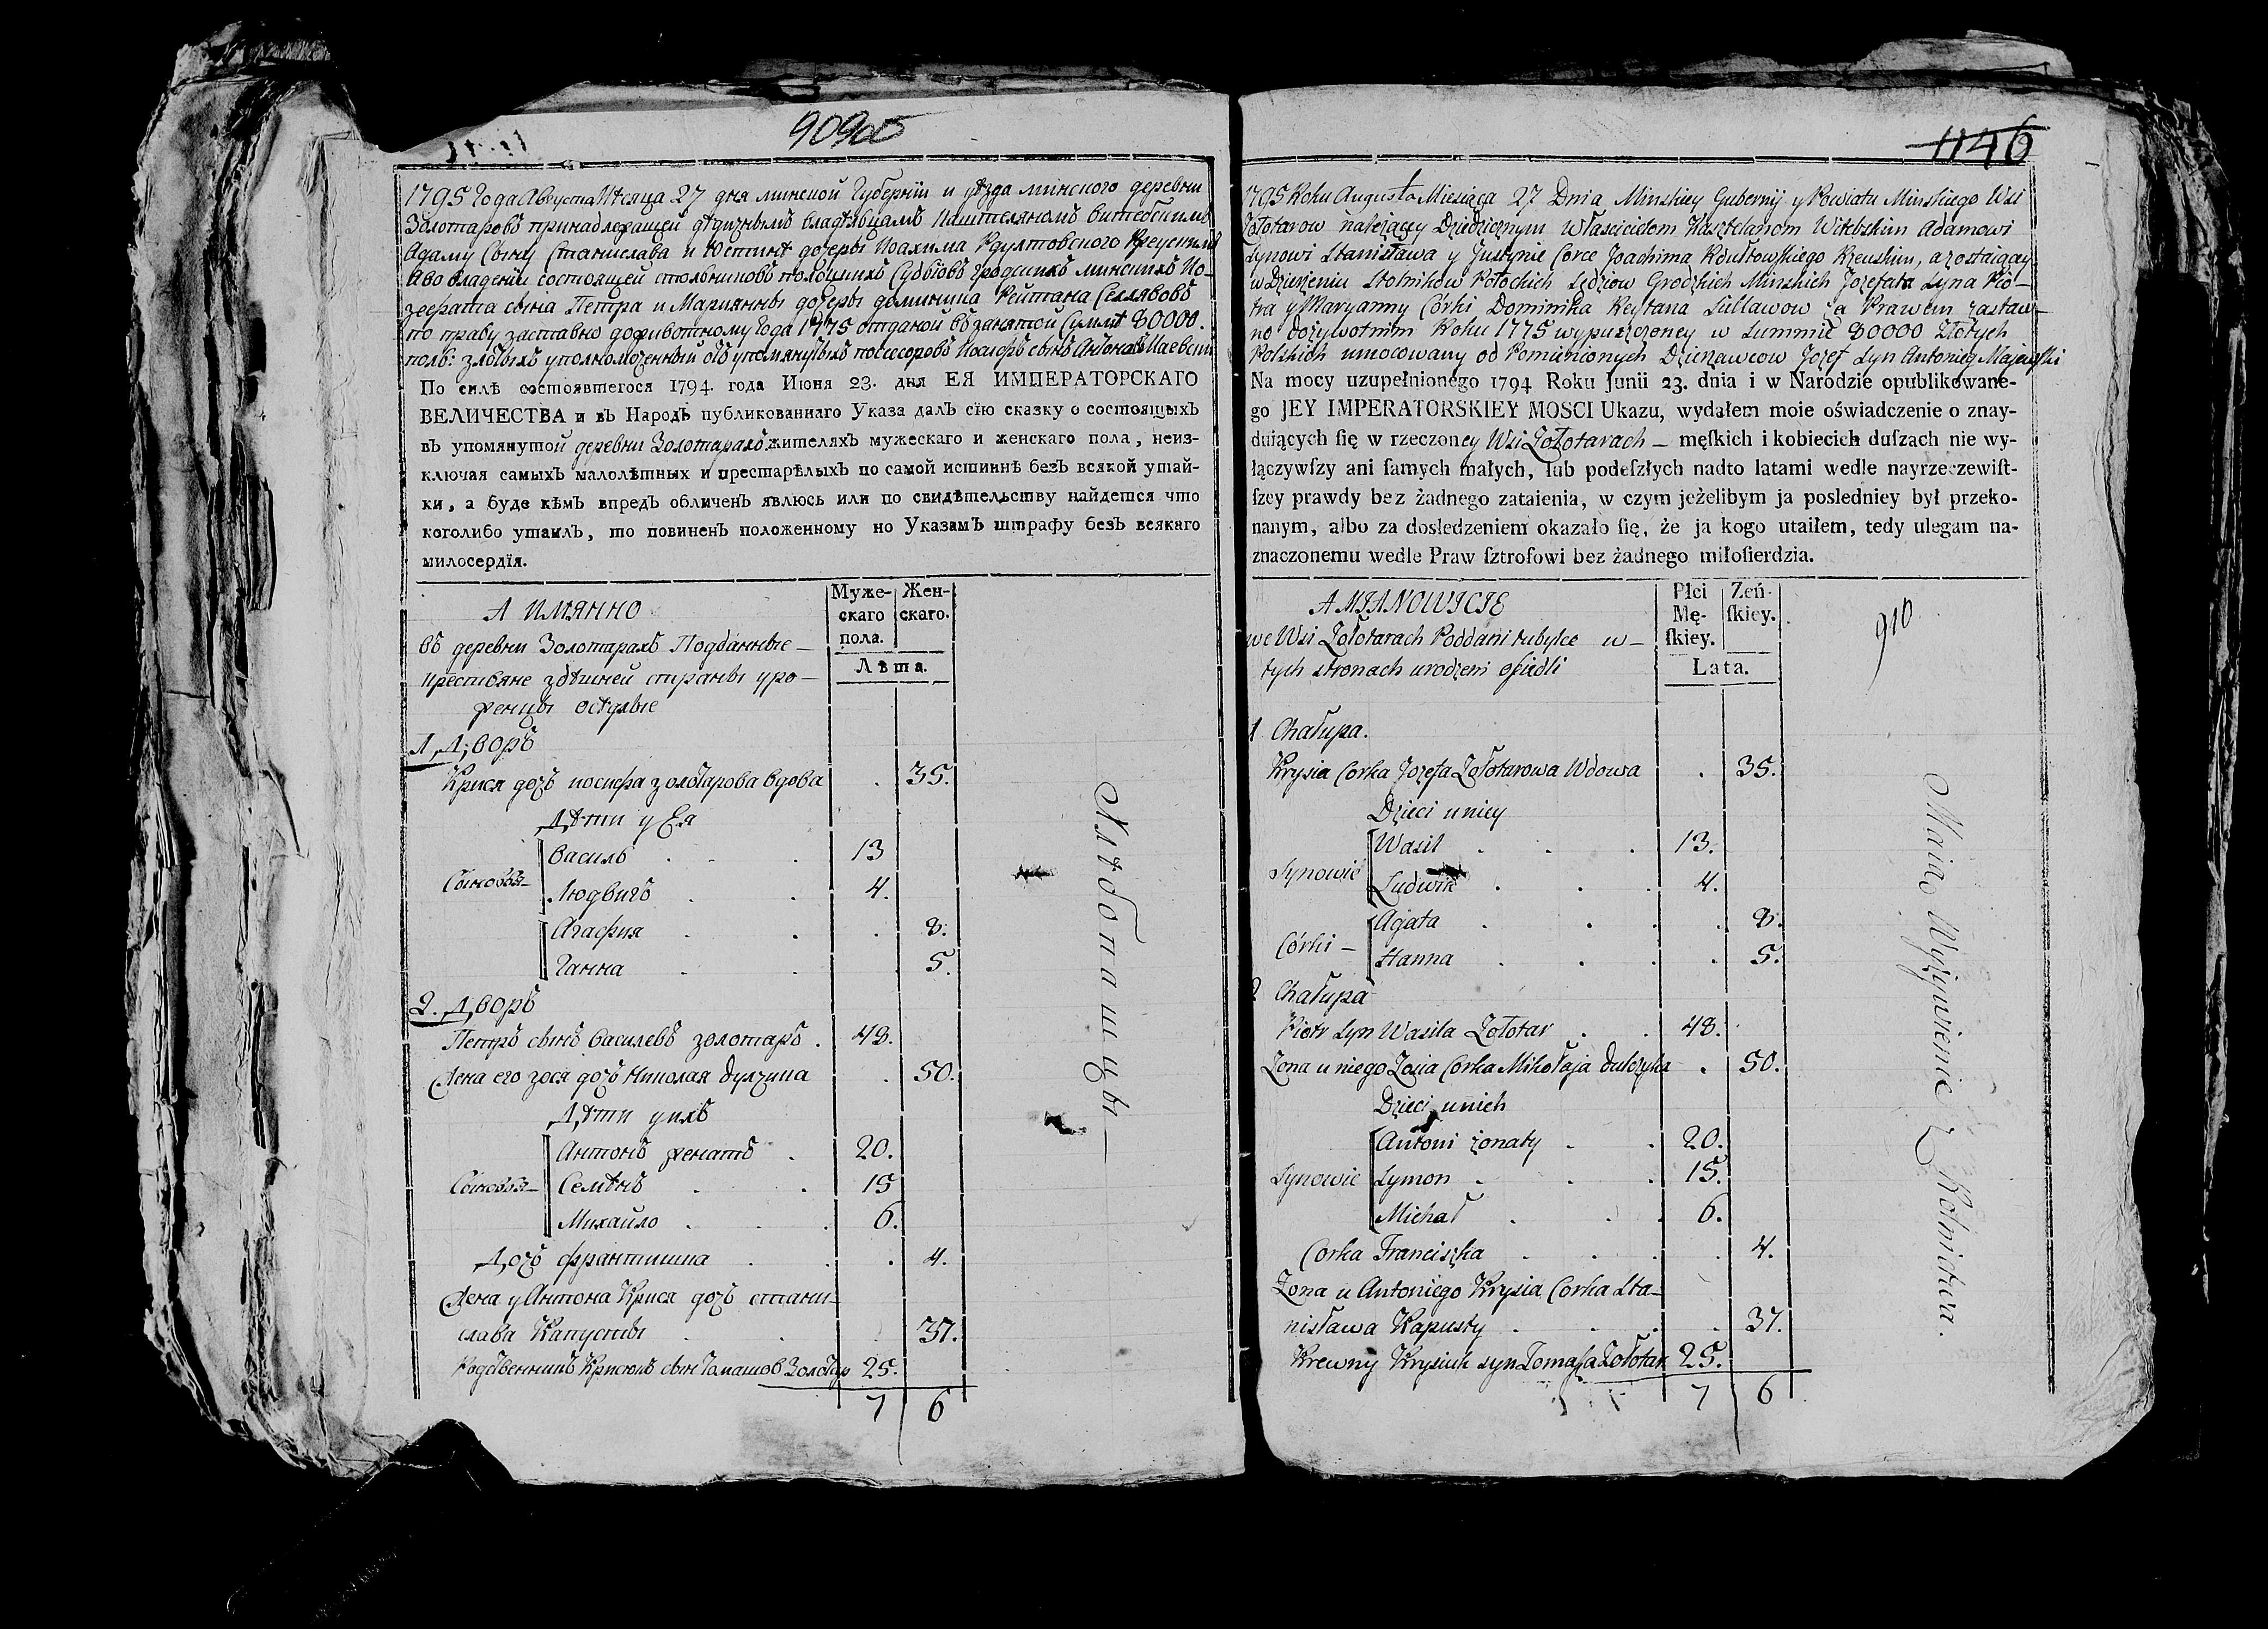 909
1795 Года Августа Месяца 27 дня минской Губернїи и уѣзда минского деревни
Золотаровъ принадлежащей дѣдизнымъ владѣльцамъ Каштеляномъ витебскимъ
Адаму Сыну Станислава и Юстинѣ дочеры Иоахима
Аво владенїи состоящей столниковъ полоцкихъ Судьїовъ гродскихъ минскихъ Ио-
зефата сына Петра и Марианны дочеры доминика Рейтана Селлявовъ
по праву заставно доживотному Года 1775 отданой въ занятой Суммѣ 80000.
поль: злотыхъ уполномоченный отъ упомянутыхъ посессоровъ Иосифъ сынъ Антона Маевский
По силѣ состоявшегося 1794 года Июня 23. дня ЕЯ ИМПЕРАТОРСКАГО
ВЕЛИЧЕСТВА и въ Народъ публикованнаго Указа далъ сїю сказку о состоящыхъ
въ упомянутой деревни Золотарахъ жителяхъ мужескаго и женскаго пола, неиз-
ключая самыхъ малолѣтных и престарѣлыхъ по самой истиннѣ безъ всякой утай-
ки, а буде кѣмъ впредъ обличенъ явлюсь или по свидѣтельству найдется что
коголибо утаилъ, то повиненъ положенному но Указамъ штрафу безъ всякаго
милосердїя.
А ИМЯННО
Муже-скаго пола.
Жен-скаго.
Лѣта.
въ деревни Золотарахъ Подданные —
крестьяне здѣшней стираны уро—
женцы осѣдлые
1, Дворъ
Крися дочъ иосифа золотарова вдова . 35.
Дѣти у Ея
Сыновья—
Василь . . . 13
Людвигъ . . 4.
Агафия . . . 8.
Ганна . . 5.
2. Дворъ
Петръ сынъ Василевъ золотаръ . 48.
Жена его зося дочъ Николая Дулчика . 50.
Дѣти унхъ
Сыновья—
Антонъ женатъ . 20.
Семѣнъ . . 15
Михайло . . . 6.
Дочъ франтишка . . . 4.
Жена у Антона Крися дочъ стани—
слава Капусты . . . 37.
Родственникъ Крисюкъ сынъ Томашовъ Золотар 25.
7 6
Хлѣбопашцы —
1146
1795 Roku Augusta Miesiąca 27 Dnia Minskiey Gubernij y Powiatu Minskiego Wsi
Zołotarow należącey Dziedzicznym Włascicielom Kasztelanom Witebskim Adamowi
Synowi Stanisława y Justynie Corce Joachima Rdułtowskiego Rzeuskim, a zostaiącey
w Dzierżeniu Stolnikow Połockich Sędziow Grodzkich Minskich Jozefata Syna Pio—
tra y Maryanny Córki Dominika Reytana Sielławow za Prawem zastaw—
no dożywotnim Roku 1775 wypuszczoney w Summie 80000 Złotych
Polskich umocowany od Pomienionych Dzierżawcow Jozef Syn Antoniego Majewski
Na mocy uzupełnionego 1794 Roku Junii 23. dnia i w Narodzie opublikowane-
go JEY IMPERATORSKIEY MOSCI Ukazu, wydałem moie oświadczenie o znay-
duiących ſię w rzeczoney Wsi Zołotarach — męſkich i kobiecich duſzach nie wy-
łączywſzy ani ſamych małych, lub podeſzłych nadto latami wedle nayrzeczewiſt-
ſzey prawdy bez żadnego zataienia, w czym jeżelibym ja posledniey był przeko-
nanym, albo za dosledzeniem okazało ſię, że ja kogo utaiłem, tedy ulegam na-
znaczonemu wedle Praw ſztrofowi bez żadnego miłoſierdzia.
A MIANOWICIE
Płci Mę-ſkiey.
Zeń-ſkiey.
Lata.
910
we Wsi Zołotarach Poddani tubylce w—
tych stronach urodzeni osiedli
1 Chałupa.
Krysia Corka Jozefa Zołotarowa Wdowa . 35.
Dzieci u niey
Synowie
Wasil . . . 13.
Ludwik . . . 4.
Córki —
Agata . . . . 8.
Hanna . . . . 5.
2 Chałupa
Piotr Syn Wasila Zołotar . . 48.
Zona u niego Zosia Corka Mikołaja Dulczyka . 50.
Dzieci u nich
Synowie
Antoni żonaty . . 20.
Symon . . . 15.
Michał . . . 6.
Corka Franciszka . . . . 4.
Zona u Antoniego Krysia Corka Sta—
nisława Kapusty . . . . 37.
Krewny Krysiuk syn Tomasza Zołotar 25.
7 6
Maią Wyżywienie z Rolnictwa.